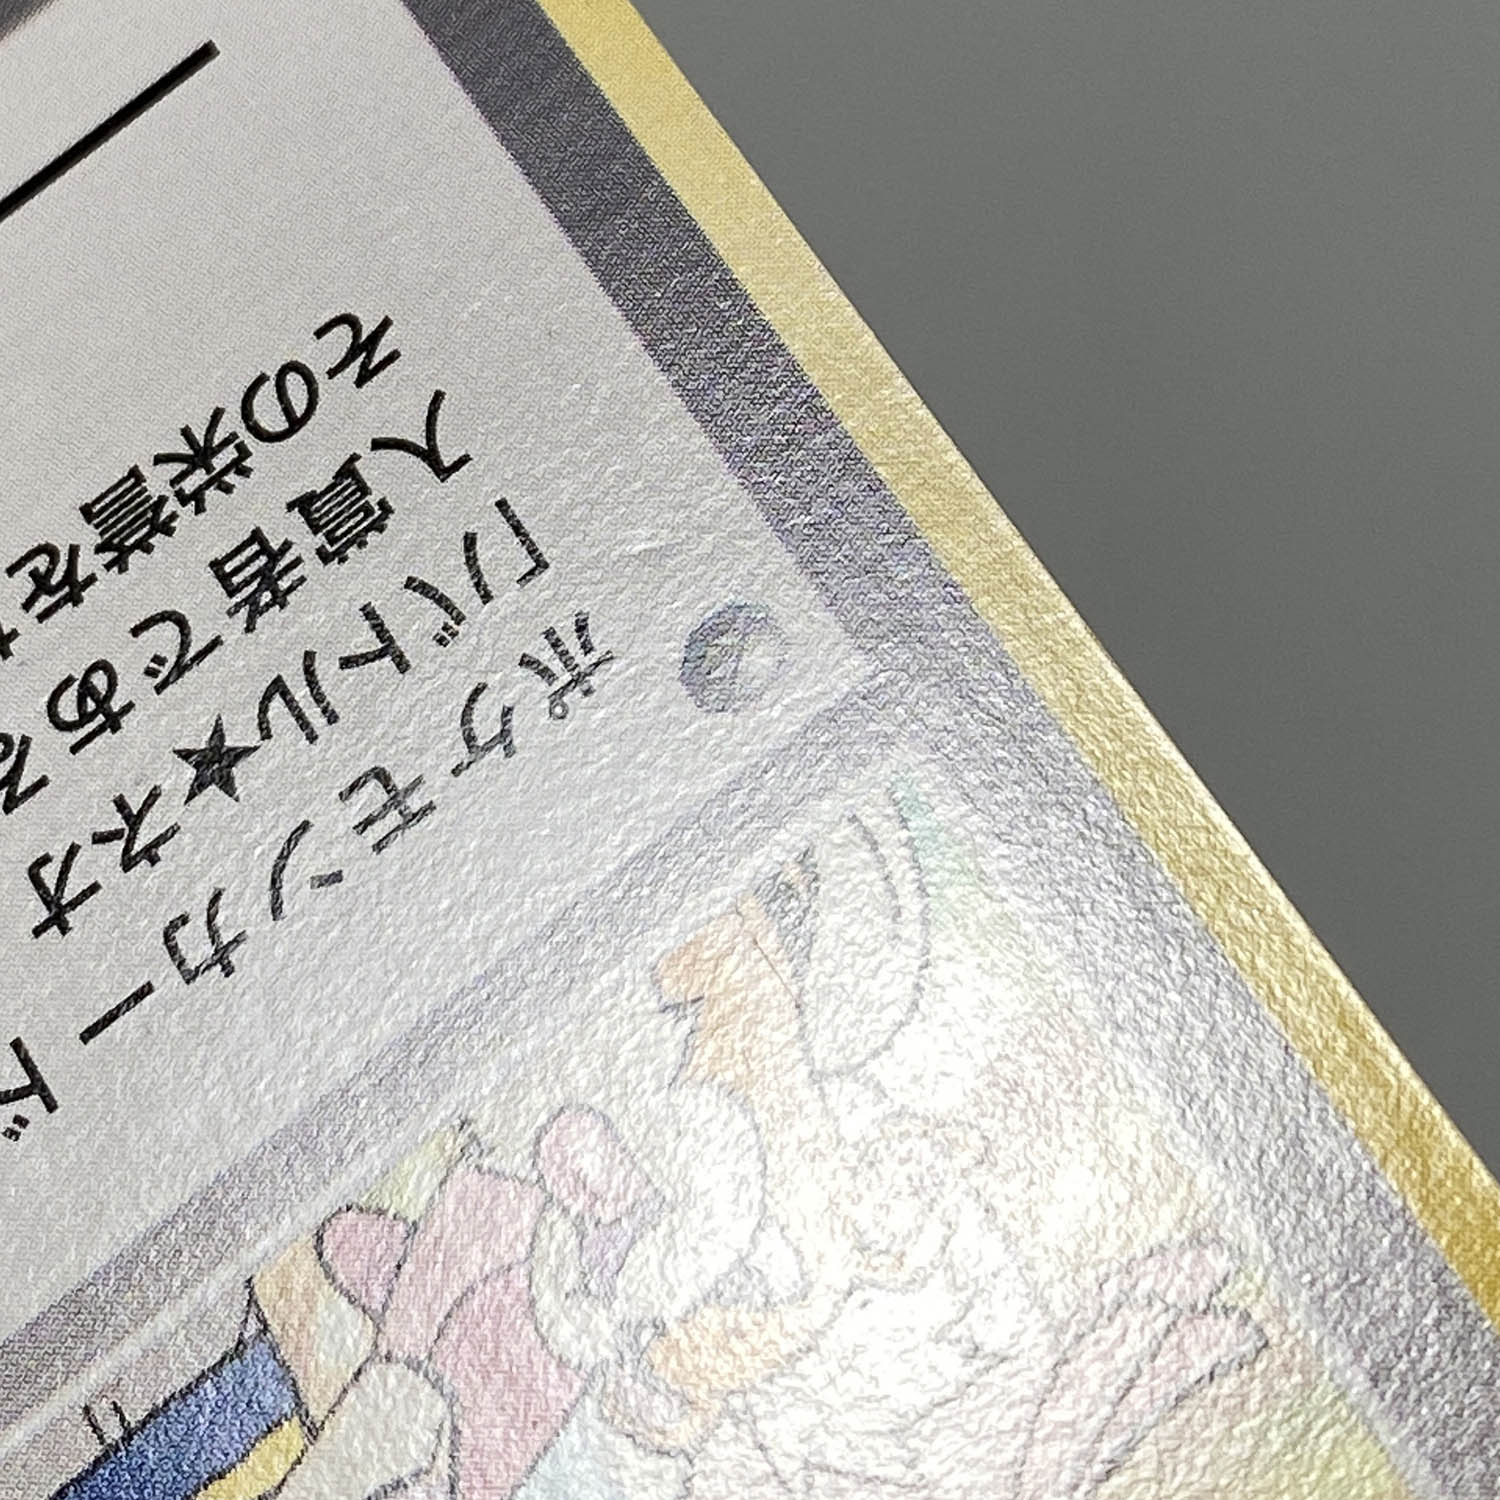 ポケモンカード
「バトル★ネオ
入賞者である
その栄誉を